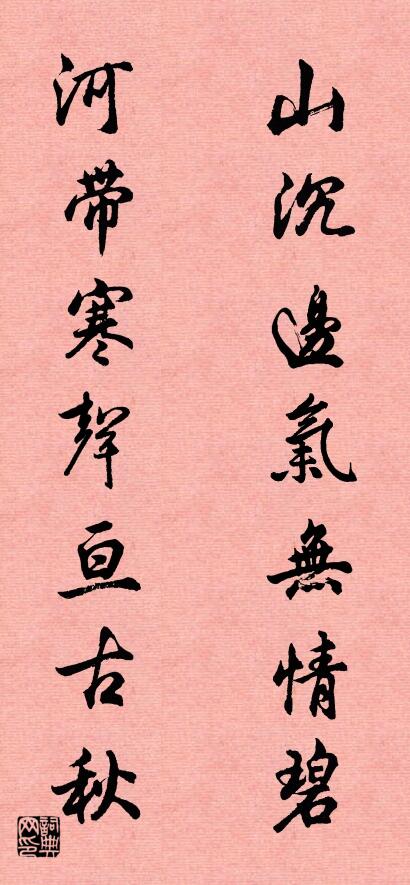 山沉邊氣無情碧
河帶寒聲亘古秋
詞典网印